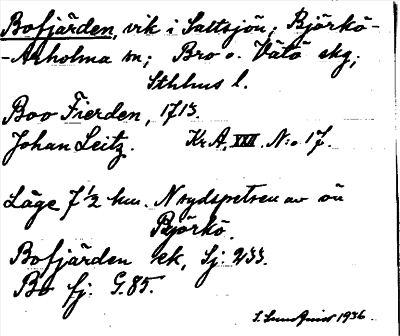 Bofjärden, vik i Saltsjön; Björkö-
-Arholma sn; Bro o. Vätö skg;
Sthlms l.
Boo Fierden, 1713.
Johan Leitz. Kr. A. XXII. N:o 17.
Läge 7 1/2 hm. N sydspetsen av ön
Björkö.
Bofjärden ek, Sj: 233.
Bo fj. G.85.
S. Lundqvist 1936.